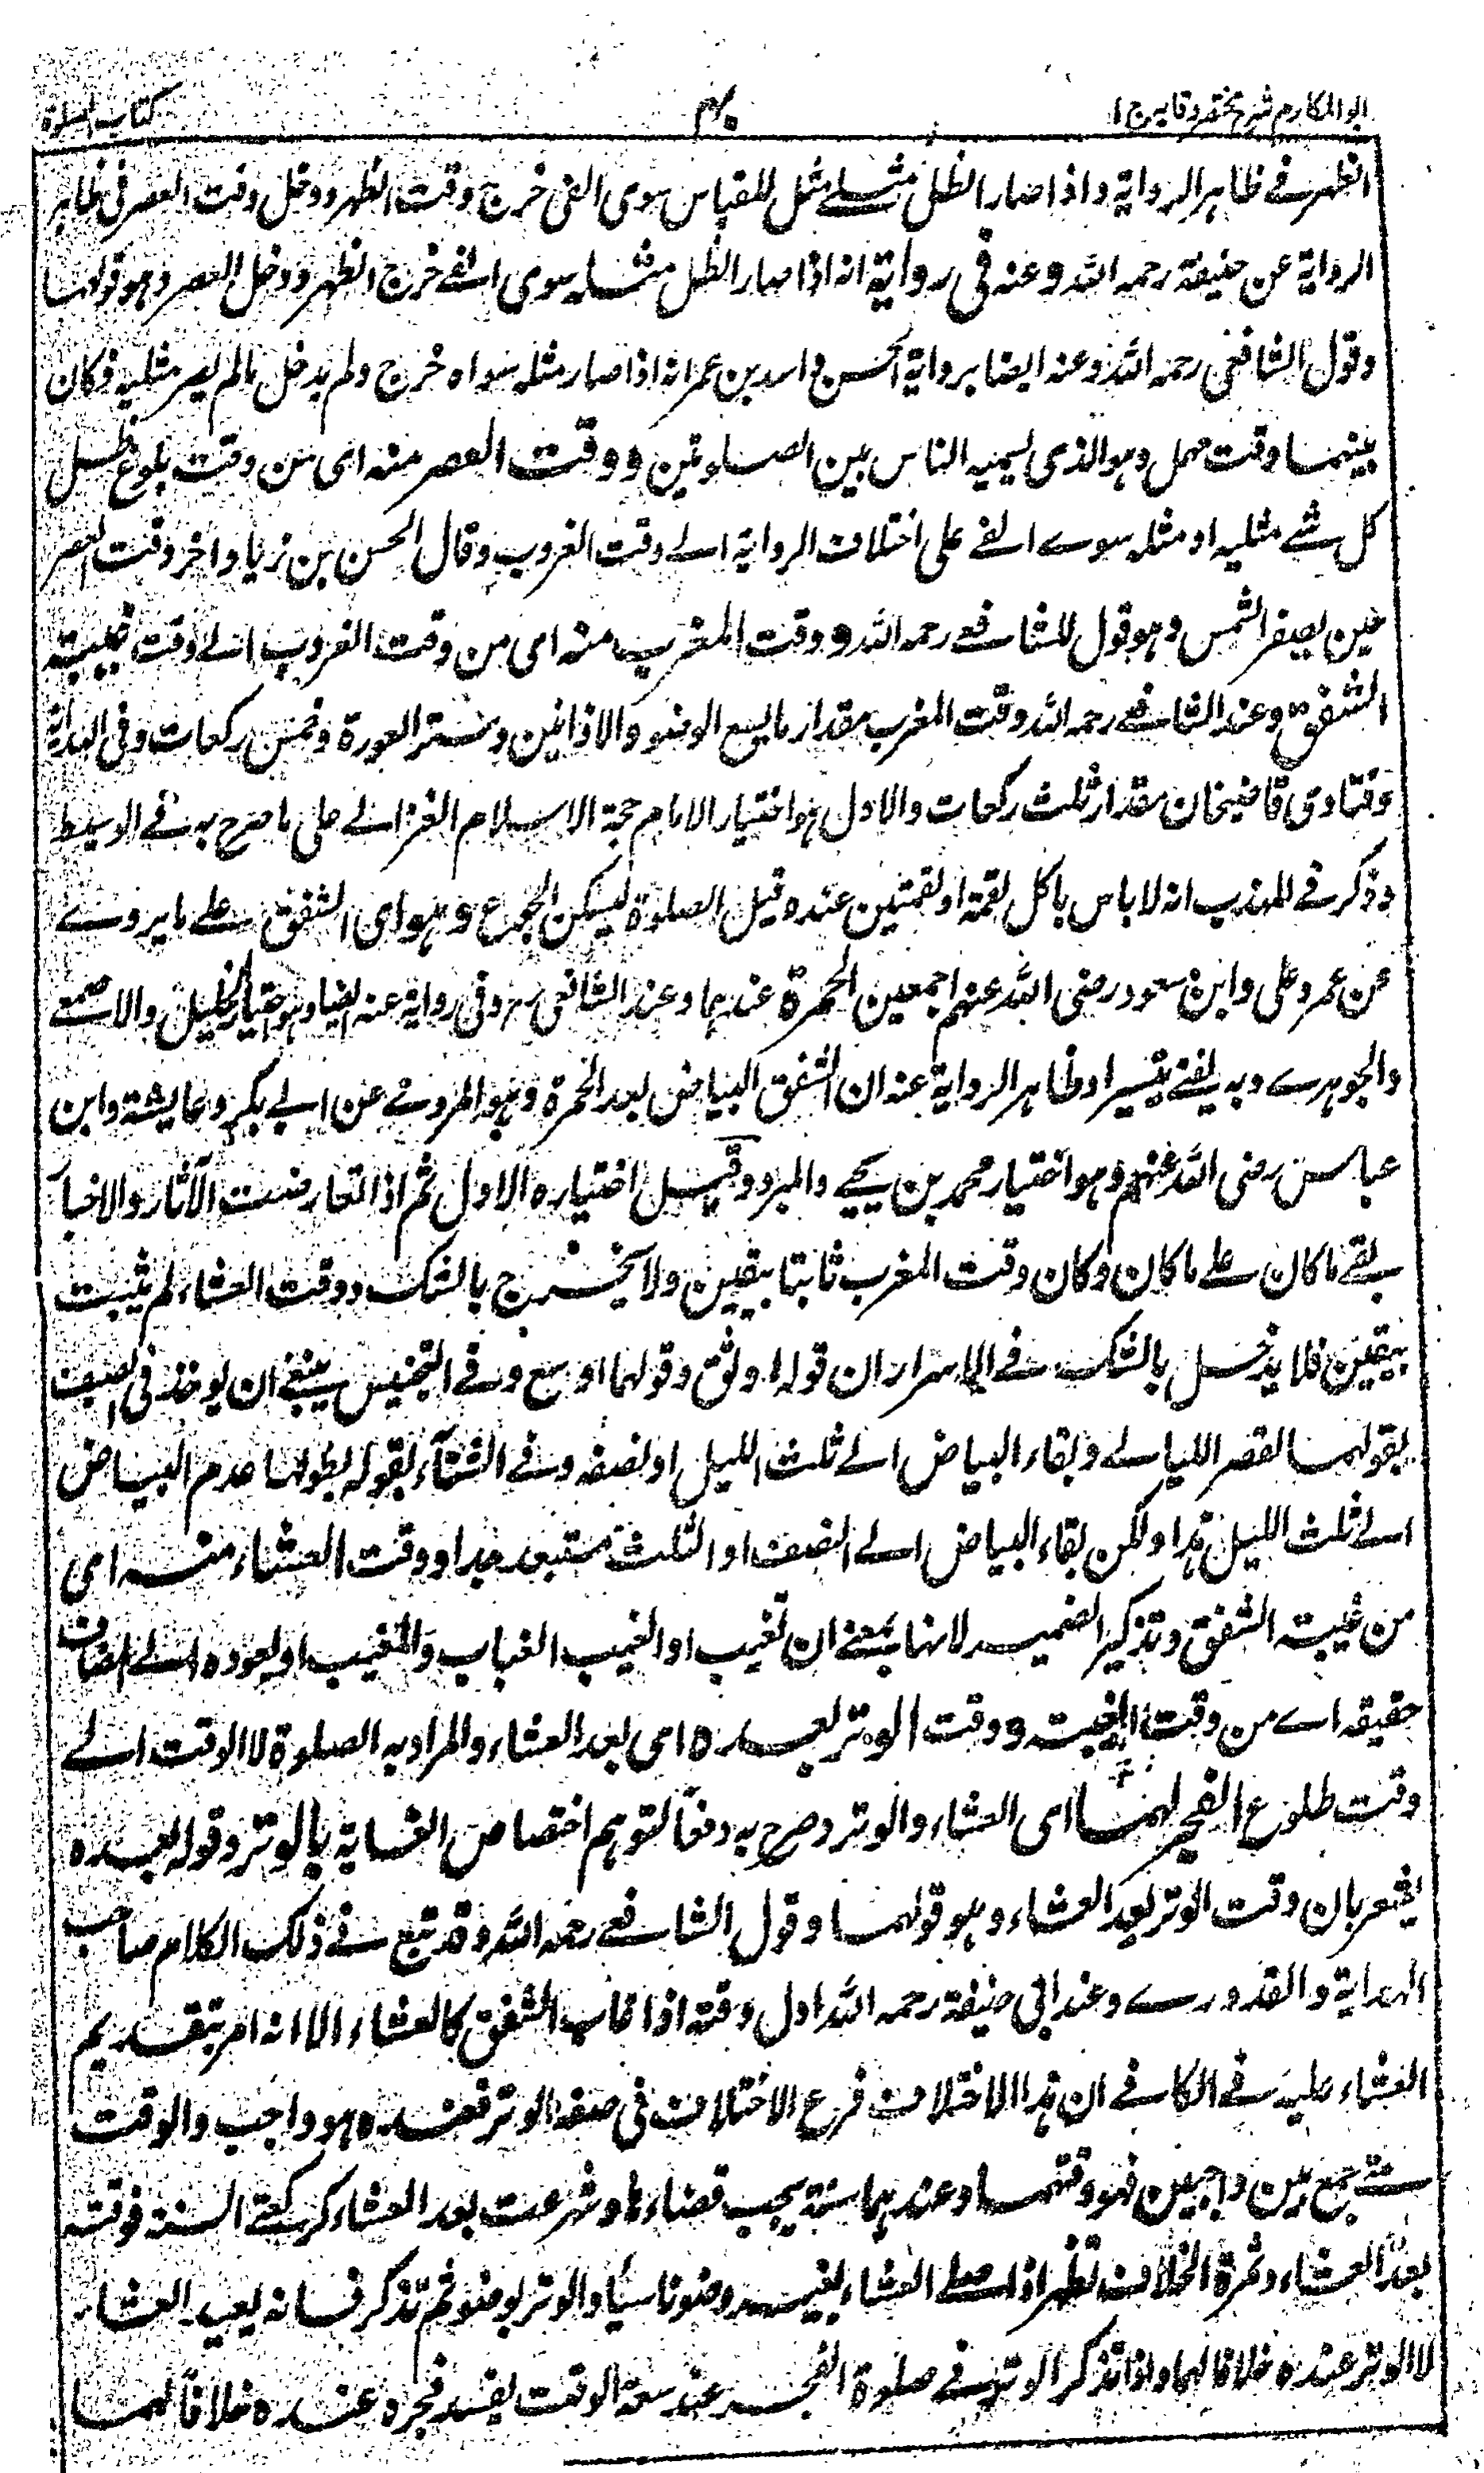 ابو المكارم شرح مختصر وقايہ ج ا
۴۰
كتاب الصلوة
الظهر في ظاهر الرواية واذا صار الظل مثلي مثل للمقياس سوى الفئ خرج وقت الظهر ودخل وقت العصر في ظاهر
الرواية عن حنيفة رحمه الله وعنه في رواية انه اذا صار الظل مثله سوى الفئ خرج الظهر ودخل العصر وهو قولهما
وقول الشافعي رحمه الله وعنه ايضا برواية الحسن و اسد بن عمر انه اذا صار مثله سواه خرج ولم يدخل مالم يصر مثليه فكان
بينهما وقت مهمل وهو الذى يسميه الناس بين الصلوتين و وقت العصر منه اى من وقت بلوغ ظل
كل شئ مثليه او مثله سوى الفئ على اختلاف الرواية الى وقت الغروب وقال الحسن بن زياد اخر وقت العصر
حين يصفر الشمس وهو قول للشافعي رحمه الله و وقت المغرب منه اى من وقت الغروب الى وقت غيبته
الشفق وعند الشافعي رحمه الله وقت المغرب مقدار ما يسع الوضوء والاذانين وستر العورة وخمس ركعات وفى الهداية
وفتاوى قاضيخان مقدار ثلث ركعات والاول هو اختيار الامام حجة الاسلام الغزالي على ما صرح به في الوسيط
وذكر في المهذب انه لا باس باكل لقمة او لقمتين عنده قبل الصلوة ليسكن الجوع وهو اى الشفق على ما يروى
عن عمر وعلى وابن مسعود رضى الله عنهم اجمعين الحمرة عندهما وعند الشافعى رح وفى رواية عنه ايضا وهو اختيار الخليل والاصمعي
والجوهرى وبه يفتى تيسيرا وظاهر الرواية عنه ان الشفق البياض بعد الحمرة وهو المروى عن ابي بكر وعايشة وابن
عباس رضى الله عنهم وهو اختيار محمد بن يحيى والمبرد وقيل اختياره الاول ثم اذا تعارضت الآثار والاخبار
بقى ما كان على ما كان وكان وقت المغرب ثابتا بيقين ولا يخرج بالشك ووقت العشاء لم يثبت
بيقين فلا يدخل بالشك في الاسرار ان قوله اوثق وقولهما اوسع وفى التجنيس ينبغى ان يوخذ فى الصيف
بقولهما لقصر الليالى وبقاء البياض الى ثلث الليل او نصفه وفى الشتاء بقوله لطولها وعدم البياض
الى ثلث الليل هذا ولكن بقاء البياض الى النصف او الثلث مستبعد جدا ووقت العشاء منه اى
من غيبة الشفق وتذكير الضمير لانها بمعنى ان تغيب او الغيب الغياب والمغيب او لعوده الى المضاف
حقيقه اى من وقت الغيبت و وقت الوتر بعده اى بعد العشاء والمراد به الصلوة لا الوقت الى
وقت طلوع الفجر لهما اى العشاء والوتر وصرح به دفعا لتوهم اختصاص الغاية بالوتر وقوله بعده
يشعر بان وقت الوتر بعد العشاء وهو قولهما وقول الشافعي رحمه الله وقد تبع في ذلك الكلام صاحب
الهداية والقدورى وعند ابى حنيفة رحمه الله اول وقته اذا غاب الشفق كالعشاء الا انه امر بتقديم
العشاء عليه في الكافي ان هذا الاختلاف فرع الاختلاف فى صفة الوتر فعنده هو واجب والوقت
متى جمع بين واجبين فهو وقتهما وعندهما سنة يجب قضاءها وشرعت بعد العشاء كركعتى السنة فوقته
بعد العشاء وثمرة الخلاف تظهر اذا صلى العشاء بغير وضوء ناسيا والوتر بوضوء ثم تذكر فانه يعيد العشاء
لا الوتر عنده خلافا لهما واذا تذكر الوتر في صلوة الفجر عند سعة الوقت يفسد فجره عنده خلافا لهما